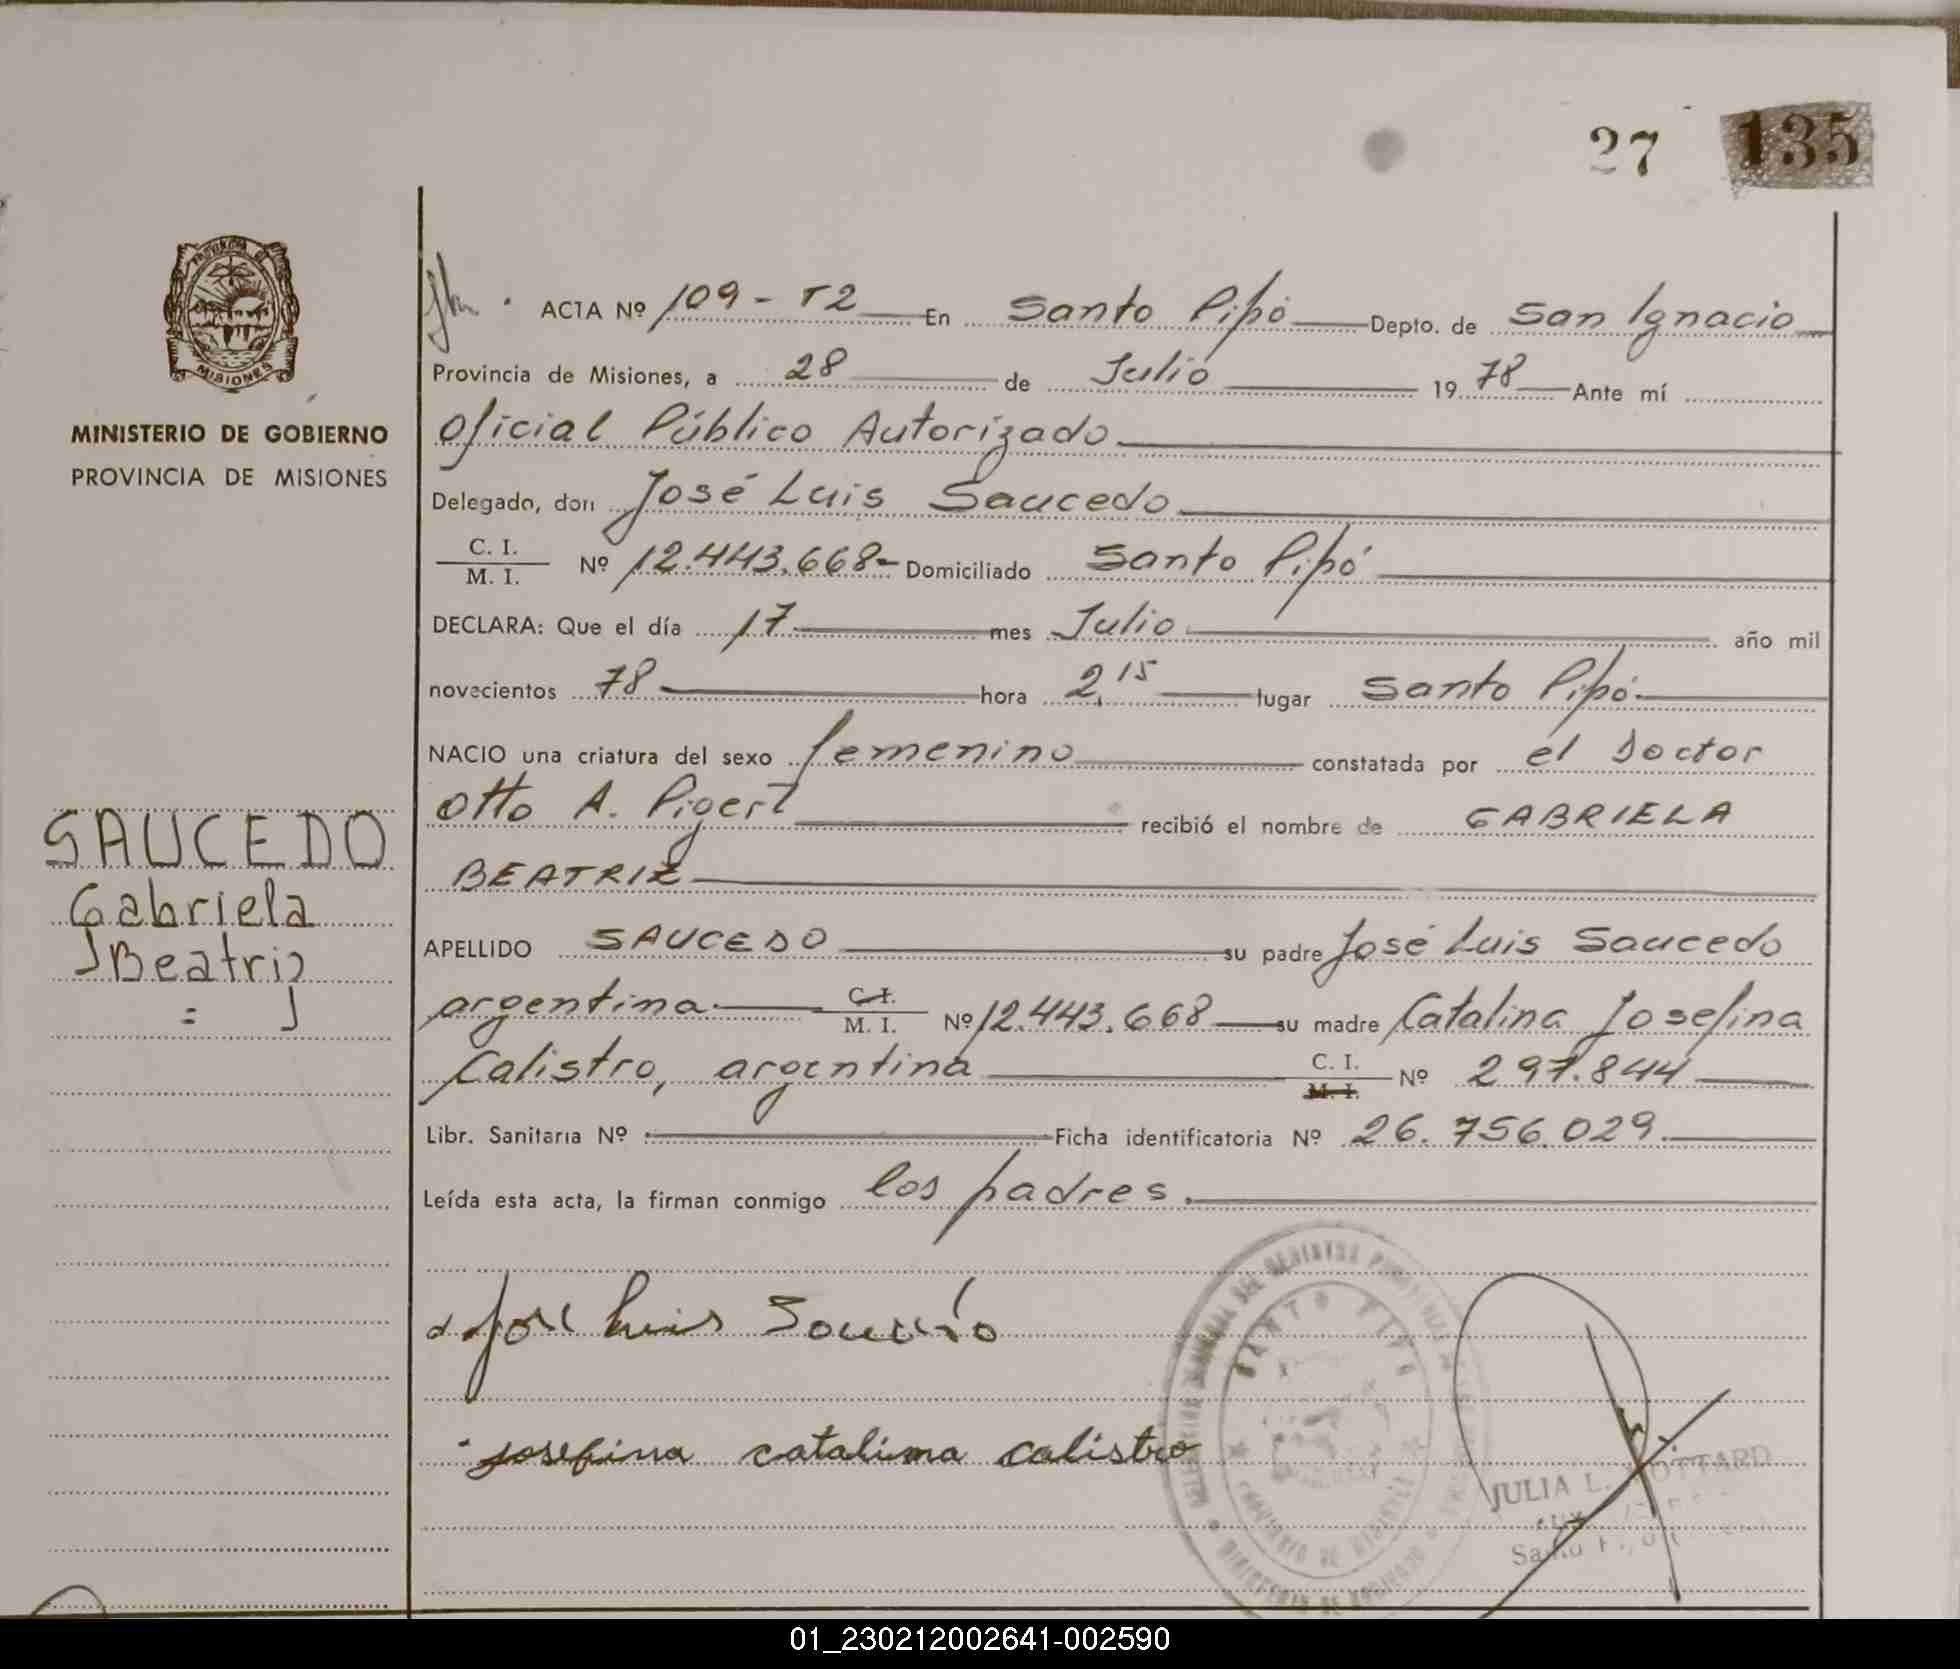 27 135
ACTA Nº 109 - T2 En Santo Pipó Depto. de San Ignacio
Provincia de Misiones, a 28 de Julio 19 78 Ante mí
MISIONES
MINISTERIO DE GOBIERNO
PROVINCIA DE MISIONES
Oficial Público Autorizado
Delegado, don José Luis Saucedo
C. I.
M. I. Nº 12.443.668- Domiciliado Santo Pipó
DECLARA: Que el día 17 mes Julio año mil
novecientos 78 hora 2,15 lugar Santo Pipó
NACIO una criatura del sexo femenino constatada por el Doctor
Otto A. recibió el nombre de GABRIELA
BEATRIZ
SAUCEDO
Gabriela
Beatriz
APELLIDO SAUCEDO su padre José Luis Saucedo
argentina C. I. M. I. Nº 12.443.668 su madre Catalina Josefina
Calistro, argentina C. I. M. I. Nº 297.844
Libr. Sanitaria Nº Ficha identificatoria Nº 26.756.029
Leída esta acta, la firman conmigo los padres.
José Luis Saucedo
Josefina catalina calistro
SANTO PIPO
JULIA L.
01_230212002641-002590